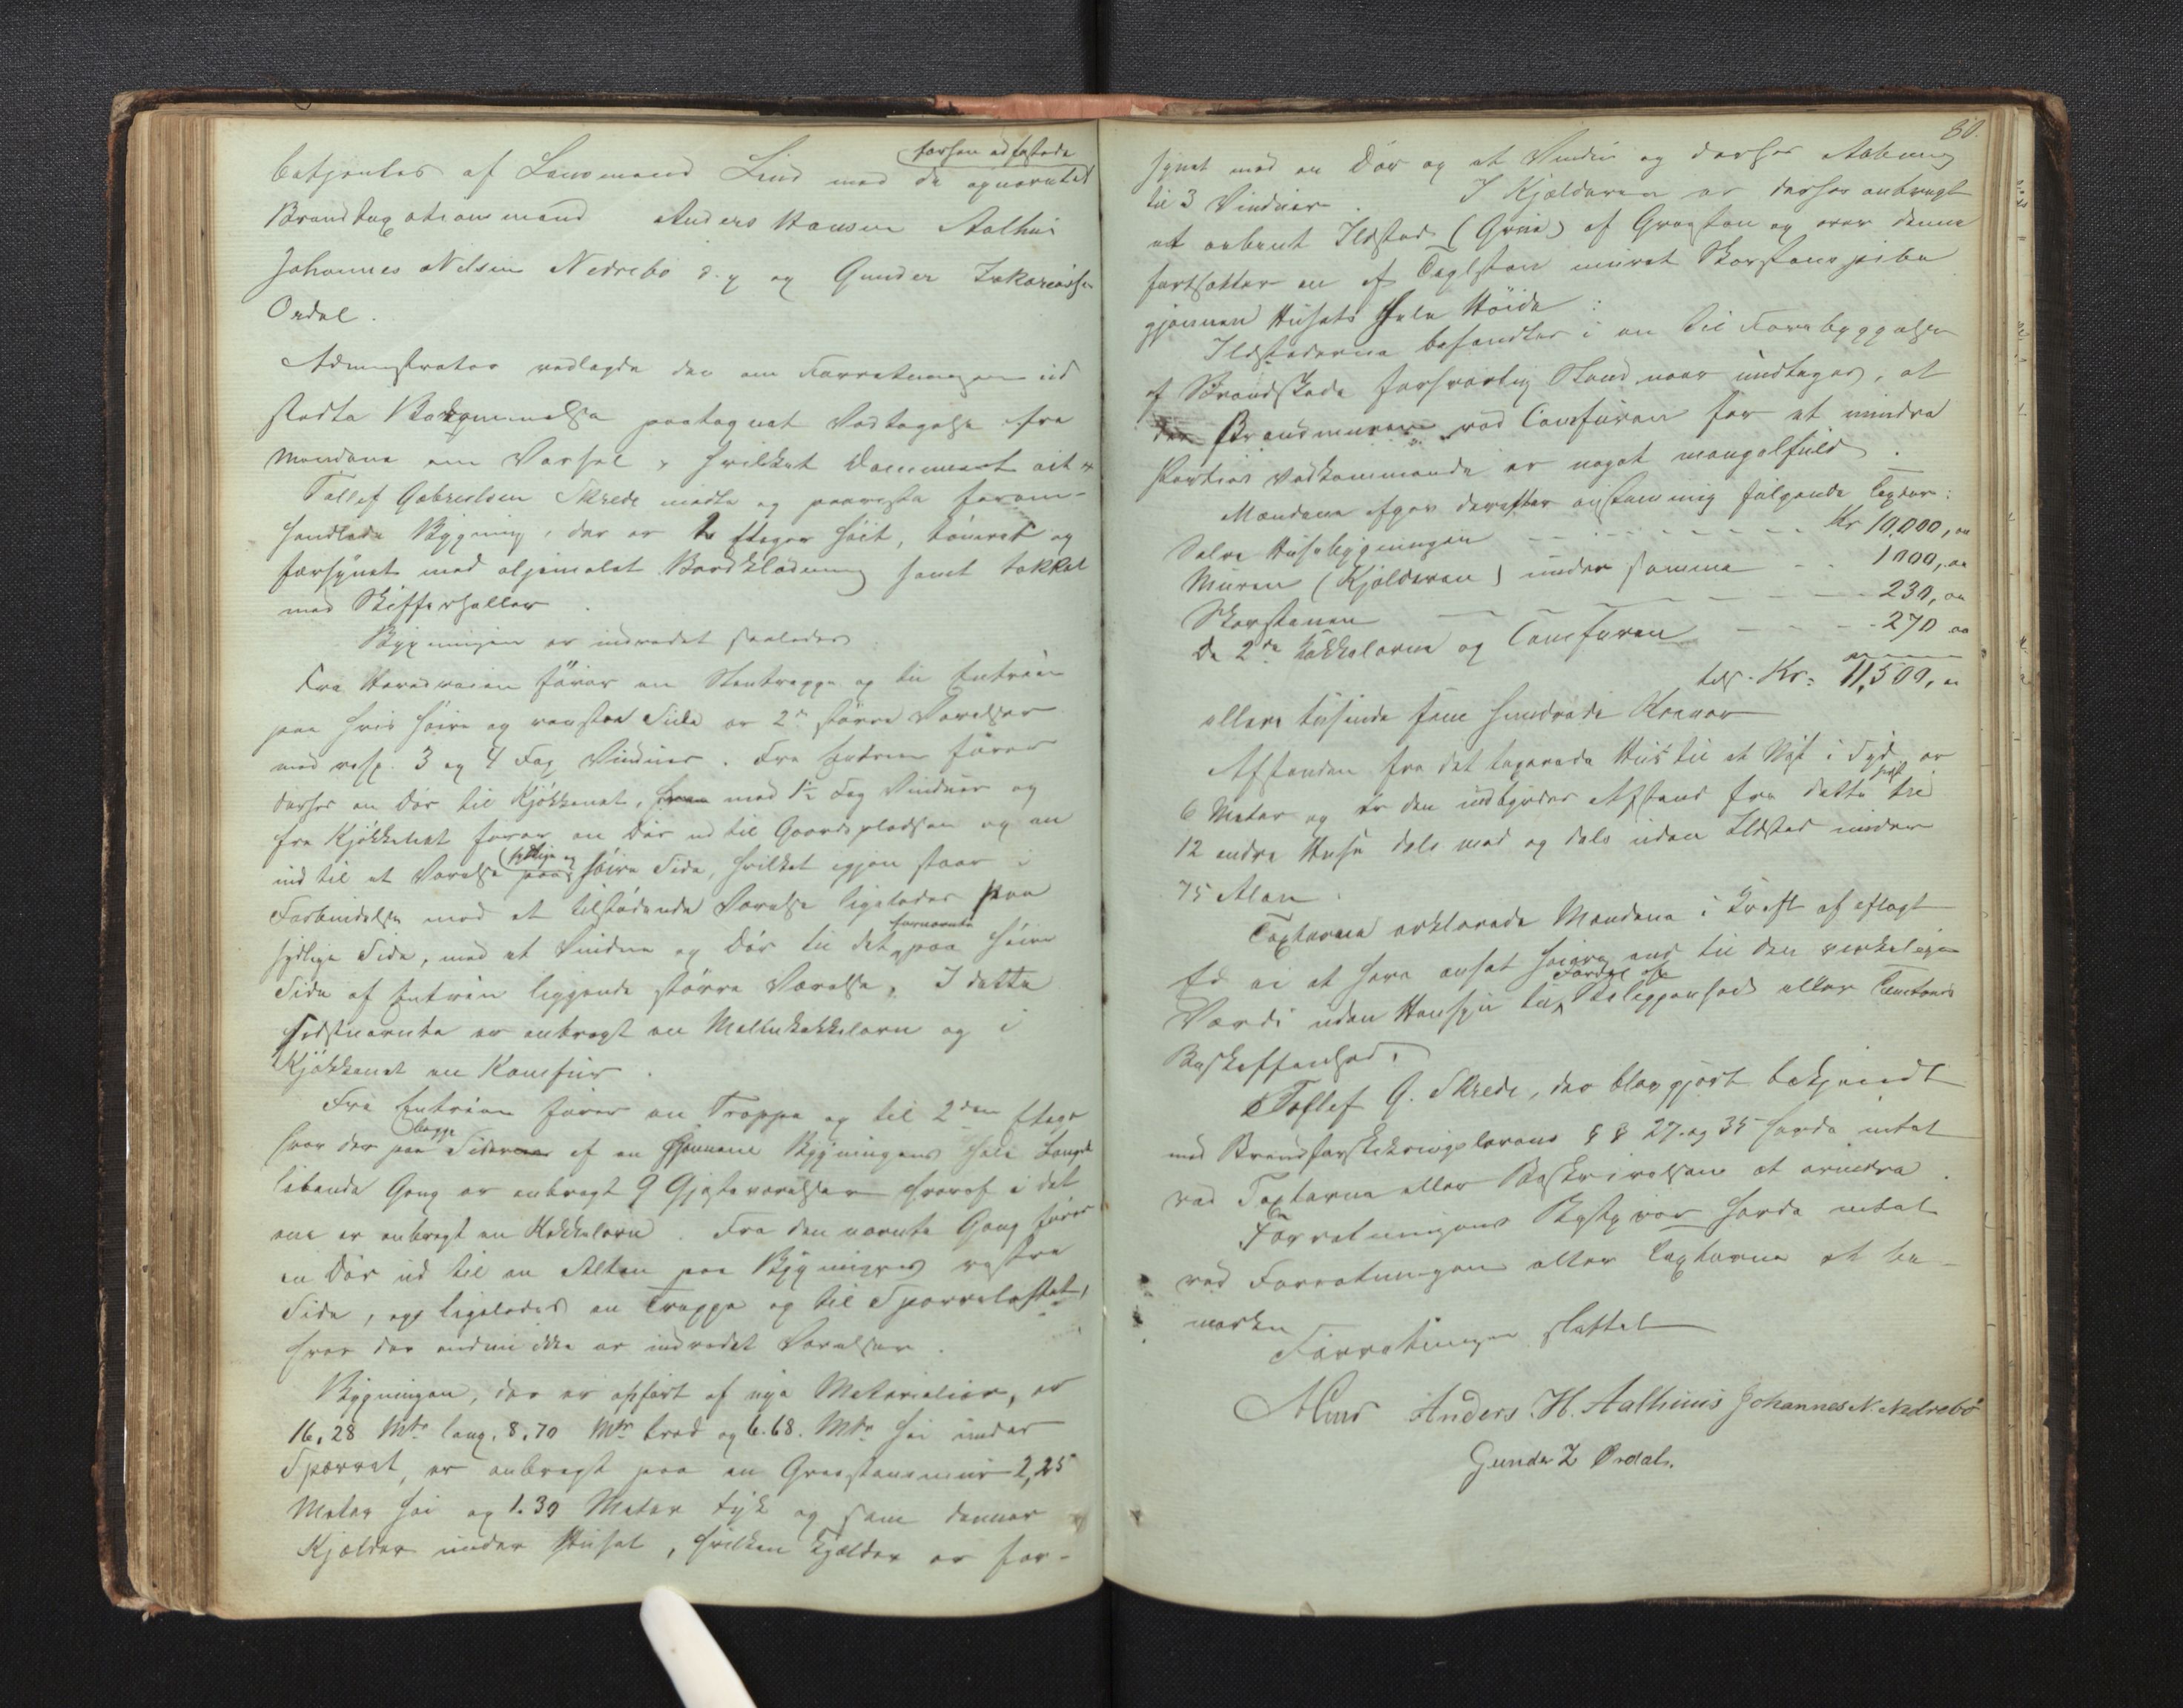 betjentes af Lensmand Lind med de opnævnte
(forhen edfæstede
Brandtaxationsmænd Anders Hansen Aalhus
Johannes Nilsen Nedrebø d. y og Gunder Zakariassen
Ordal.
Administrator vedlagde den om Forretningen ud
stædte Bekjæmmelse paategnet Vedtagelse fra
Mændene om Varsel, hvilket Document
Tollef Gabrielsen Skrede mødte og paaviste favom-
handlede Bygning, der er 2 Etager høit, tømret og
forsynet med oljemalet Bordklædning samt takket
med Skifferheller.
Bygningen er indredet saaledes
Fra Hovedveien fører en Stentrappe op til Entréen
paa hvis høire og venstre Side er 2de større Værelser
med resp. 3 og 4 Fag Vinduer. Fra Entreen fører
derhos en Dør til Kjøkkenet, med 1½ Fag Vinduer og
fra Kjøkkenet fører en Dør ud til Gaardspladsen og en
ind til et Værelse paa (sydlige og høire Side, hvilket igjen staar i
Forbindelse med et tilstødende Værelse ligeledes paa
sydlige Side, med et Vindue og Dør til det fornævnte paa høire
Side af Entréen liggende større Værelse. I dette
sidstnævnte er anbragt en Mellemkakkelovn og i
Kjøkkenet en Komfur.
Fra Entréen fører en Trappe op til 2den Etage
hvor der paa begge Siderne af en gjennem Bygningens hele Længde
løbende Gang er anbragt 9 Gjæsteværelser hvoraf i det
ene er anbragt en Kakkelovn. Fra den nævnte Gang fører
en Dør ud til en Altan paa Bygningens vestre
Side, og ligeledes en Trappe op til Sperreloftet,
hvor der endnu ikke er indredet Værelser.
Bygningen, der er opført af nye Materialier, er
16,28 Mtr lang, 8,70 Mtr bred og 6.68. Mtr høi under
Sperret, er anbragt paa en Graastensmur 2,25
Meter høi og 1.30 Meter tyk og som danner
Kjælder under Huset, hvilken Kjælder er for-
80.
synet med en Dør og et Vindu og derhos Aabning
til 3 Vinduer. I Kjælderen er derhos anbragt
et aabent Ildsted (Grue) af Graasten og over denne
fortsætter en af Teglsten muret Skorstenspibe
gjennem Husets hele Høide.
Ildstederne befandtes i en til Forebyggelse
af Brandskade forsvarlig Stand naar undtages, at
Brandmuren ved Comfuren for et mindre
Parties vedkommende er noget mangelfuld.
Mændene afgav derefter enstemmig følgende Taxter:
Selve Husebygningen - - - - Kr 10,000, oo
Muren (Kjælderen) under samme - - 1000, oo
Skorstenen - - - - 230, oo
De 2de Kakkelovne og Comfuren - - - 270 oo
tils. Kr. 11,500, oo
elleve tusinde fem hundrede Kroner
Afstanden fra det taxerede Hus til et Nøst i Syd er
6 Meter og er den indbyrdes Afstand fra dette Nøst til
12 andre Huse dels med og dels uden Ildsted under
75 Alen.
Taxterne erklærede Mændene i Kraft af aflagt
Ed ei at have ansat høiere end til den virkelige
Værdi uden Hensyn til Fordel af Beliggenhed eller Tomtens
Beskaffenhed.
Tollef G. Skrede, der blev gjort bekjendt
med Brandforsikringslovens §§ 27. og 35 havde intet
ved Taxterne eller Beskrivelsen at erindre.
Forretningens Bestyrer havde intet
ved Forretningen eller Taxterne at be-
mærke
Forretningen sluttet
ALind Anders. H. Aalhuus Johannes N. Nedrebø
Gunder Z Ordal.